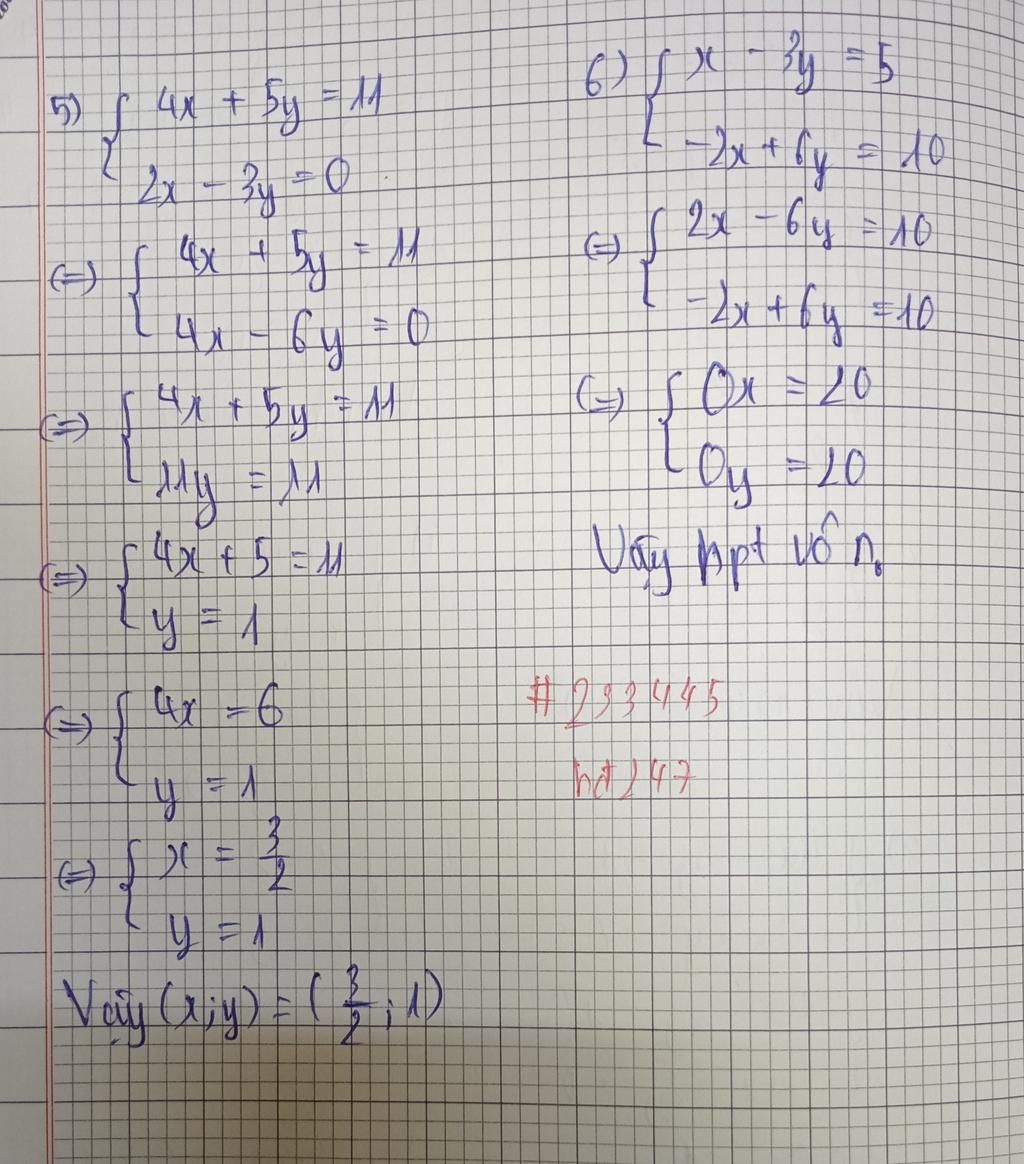 5) { 4x + 5y = 11
2x - 3y = 0
(=) { 4x + 5y = 11
4x - 6y = 0
(=) { 4x + 5y = 11
11y = 11
(=) { 4x + 5 = 11
y = 1
(=) { 4x = 6
y = 1
(=) { x = 3/2
y = 1
Vậy (x;y) = (3/2; 1)
6) { x - 3y = 5
-2x + 6y = 10
(=) { 2x - 6y = 10
-2x + 6y = 10
(=) { 0x = 20
0y = 20
Vậy hpt vô n.
# 233445
hd247